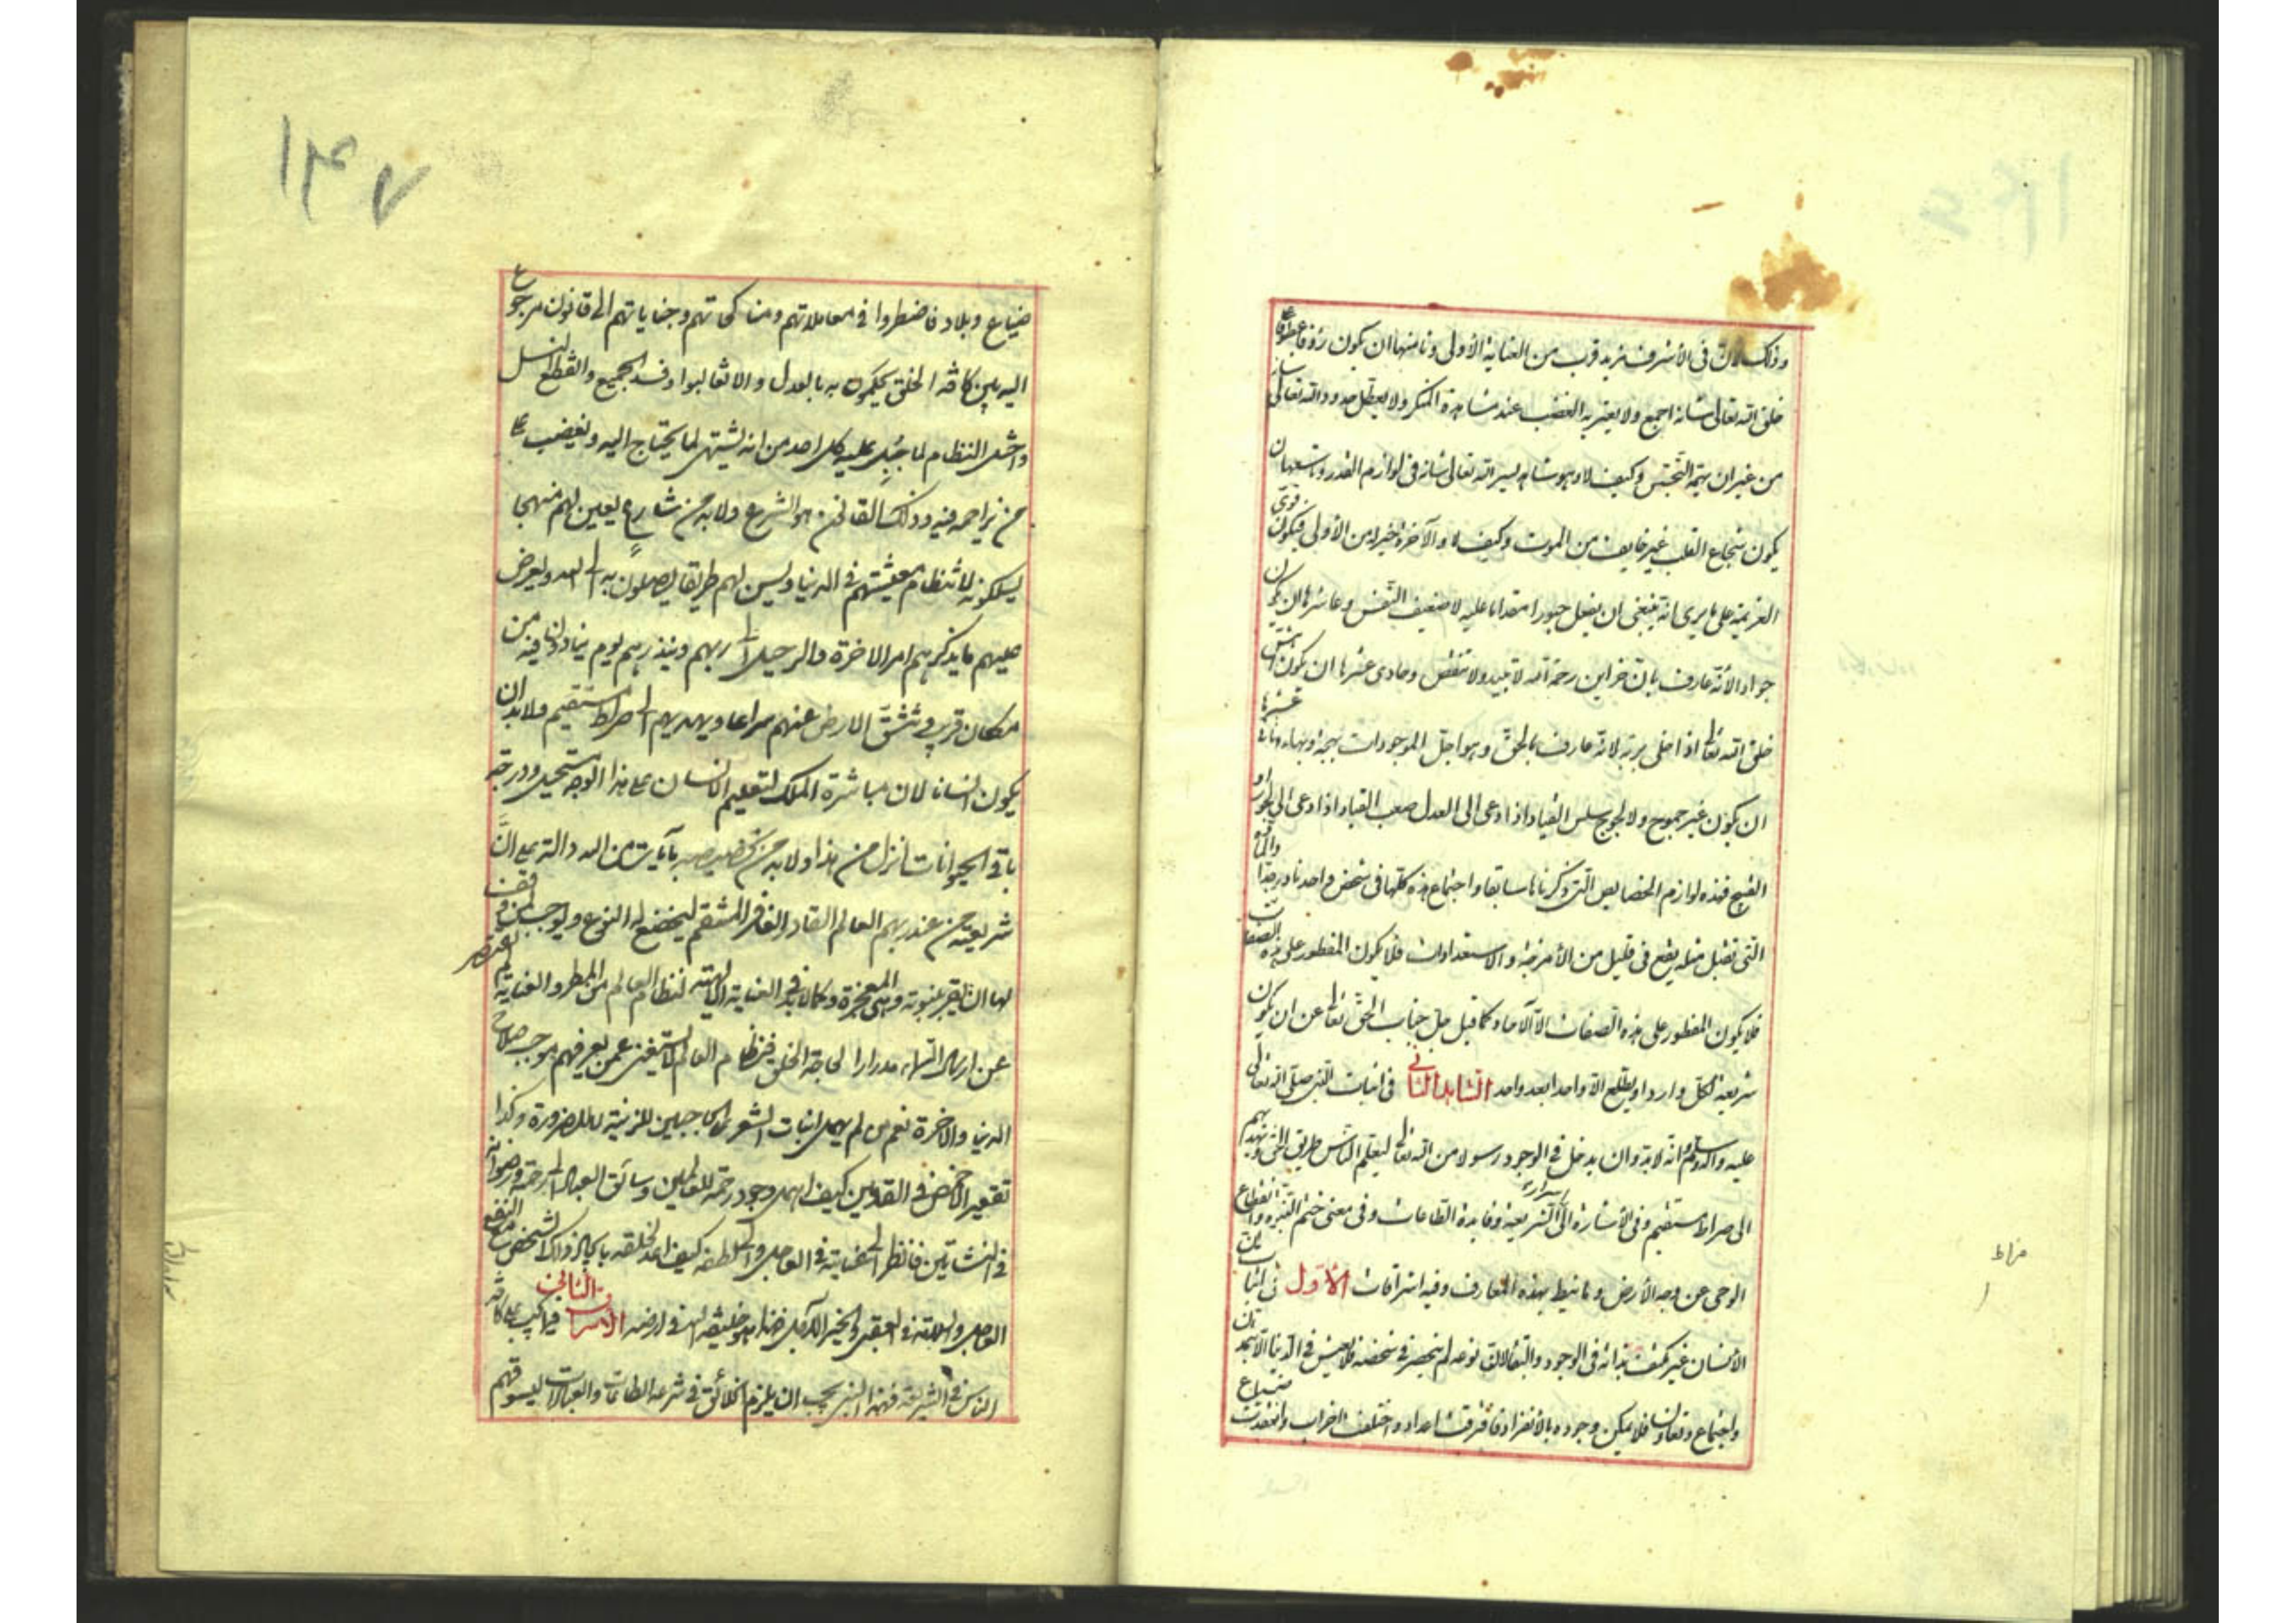 وذلك لان فى الأشرف مزيد قرب من العناية الأولى وثامنها ان يكون رؤفا عطوفا على
خلق الله تعالى شانه اجمع ولا يعتريه الغضب عند مشاهدة المنكر ولا يعطل حدود الله تعالى شانه
من غير ان يهمه التجسس وكيف لا وهو شاهد بسر الله تعالى شانه فى لوازم القدر وتاسعها ان
يكون شجاع القلب غير خايف من الموت وكيف لا والآخرة خير له من الأولى فيكون قوى
العزيمة على ما يرى انه ينبغى ان يفعل جسورا مقداما عليه لا ضعيف النفس وعاشرها ان يكون
جوادا لأنه عارف بان خزاين رحمة الله لا تبيد ولا تنقص وحادى عشرها ان يكون اهش
خلق الله تعالى اذا خلى بربه لانه عارف بالحق وهو اجل الموجودات بهجة وبهاء وثانى عشرها
ان يكون غير جموح ولا لجوج سلس القياد اذا دعى الى العدل صعب القياد اذا دعى الى الجور او
القبيح فهذه لوازم الخصايص التى ذكرناها سابقا واجتماع هذه كلها فى شخص واحد نادر جدا والمادة
التى تقبل مثله يقع فى قليل من الأمزجة والاستعدادات فلا يكون المفطور على هذه الصفات
فلا يكون المفطور على هذه الصفات الا الآحاد وكما قيل جل جناب الحق تعالى عن ان يكون
شريعة لكل وارد او يطلع الا واحدا بعد واحد الشاهد الثانى فى اثبات النبى صلى الله تعالى
عليه وآله وسلم وانه لابد وان يدخل فى الوجود رسولا من الله تعالى ليعلم الناس طريق الحق ويهديهم
الى صراط مستقيم وفى الأشارة الى اسرار الشريعة وفايدة الطاعات وفى معنى ختم النبوة وانقطاع
الوحى عن وجه الأرض وما نيط بهذه المعارف وفيه اشراقات الأول فى اثبات ان
الأنسان غير مكتف بذاته فى الوجود والبقاء لان نوعه لم ينحصر فى شخصه فلا يعيش فى الدنيا الا بتمدن
واجتماع وتعاون فلا يمكن وجوده بالأنفراد فافترقت اعداد واختلفت احزاب وانعقدت ضياع
صراط
١٤٧
ضياع وبلاد فاضطروا فى معاملاتهم ومناكحاتهم وجناياتهم الى قانون مرجوع
اليه بين كافه الخلق يحكمون به بالعدل والا تغالبوا وفسد الجميع وانقطع النسل
واختل النظام لما جبل عليه كل احد من انه يشتهى لما يحتاج اليه ويغضب على
من يزاحمه فيه وذلك القانون هو الشرع ولا بد من شارع يعين لهم منهجا
يسلكونه لانتظام معيشتهم فى الدنيا ويسن لهم طريقا يصلون به الى الله ويفرض
عليهم ما يذكرهم امر الاخرة والرحيل الى ربهم وينذرهم بيوم ينادون فيه من
مكان قريب وتنشق الارض عنهم سراعا ويهديهم الى صراط مستقيم ولابد ان
يكون انسانا لان مباشرة الملك لتعليم الانسان على هذا الوجه مستحيل ودرجة
باقى الحيوانات انزل من هذا ولا بد من تخصيصه بآيات من الله دالة على ان
شريعته من عند ربهم العالم القادر الغافر المنتقم ليخضع له النوع ويوجب لمن وقف
لها ان يقر بنبوته وهى المعجزة وكما لابد فى العناية الالهية لنظام العالم من المطر والعناية لم تقتصر
عن ارسال السماء مدرارا لحاجة الخلق فنظام العالم لا يستغنى عمن يعرفهم موجب صلاح
الدنيا والاخرة نعم من لم يهمل انبات الشعر على الحاجبين للزينة لا للضرورة وكذا
تقعير الاخمص فى القدمين كيف اهمل وجود رحمة للعالمين وسائق العباد الى رحمته ورضوانه
فى النشاتين فانظر الى عنايته فى العاجل والى لطفه كيف اعد لخلقه بايجاد ذلك الشخص مع النفع
العاجل والسلامة فى العقبى والخير الآجل فهذا هو خليفة الله فى ارضه الاشراق الثانى فيما كتب على كافة
الناس فى الشريعة فهذا النبى يجب ان يلزم الخلائق فى شرعه الطاعات والعبادات ليسوقهم